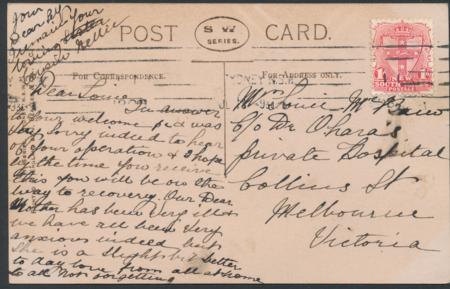 POST CARD.
S W
SERIES.
FOR CORRESPONDENCE.
FOR ADDRESS ONLY.
Dear Louie In answer
to your welcome p.c. I was
very sorry indeed to hear
of your operation & I hope
by the time you receive
this you will be on the
way to recovery. Our Dear
Mother has been very ill &
we have all been very
anxious indeed but
she is a slight bit better
to day love from all at home
to all not forgetting
your
Dear
remain your
loving
cousin Nellie
Louie
C/o Dr O'Haras
Private Hospital
Collins St
Melbourne
Victoria
NEW
SOUTH
POSTAGE